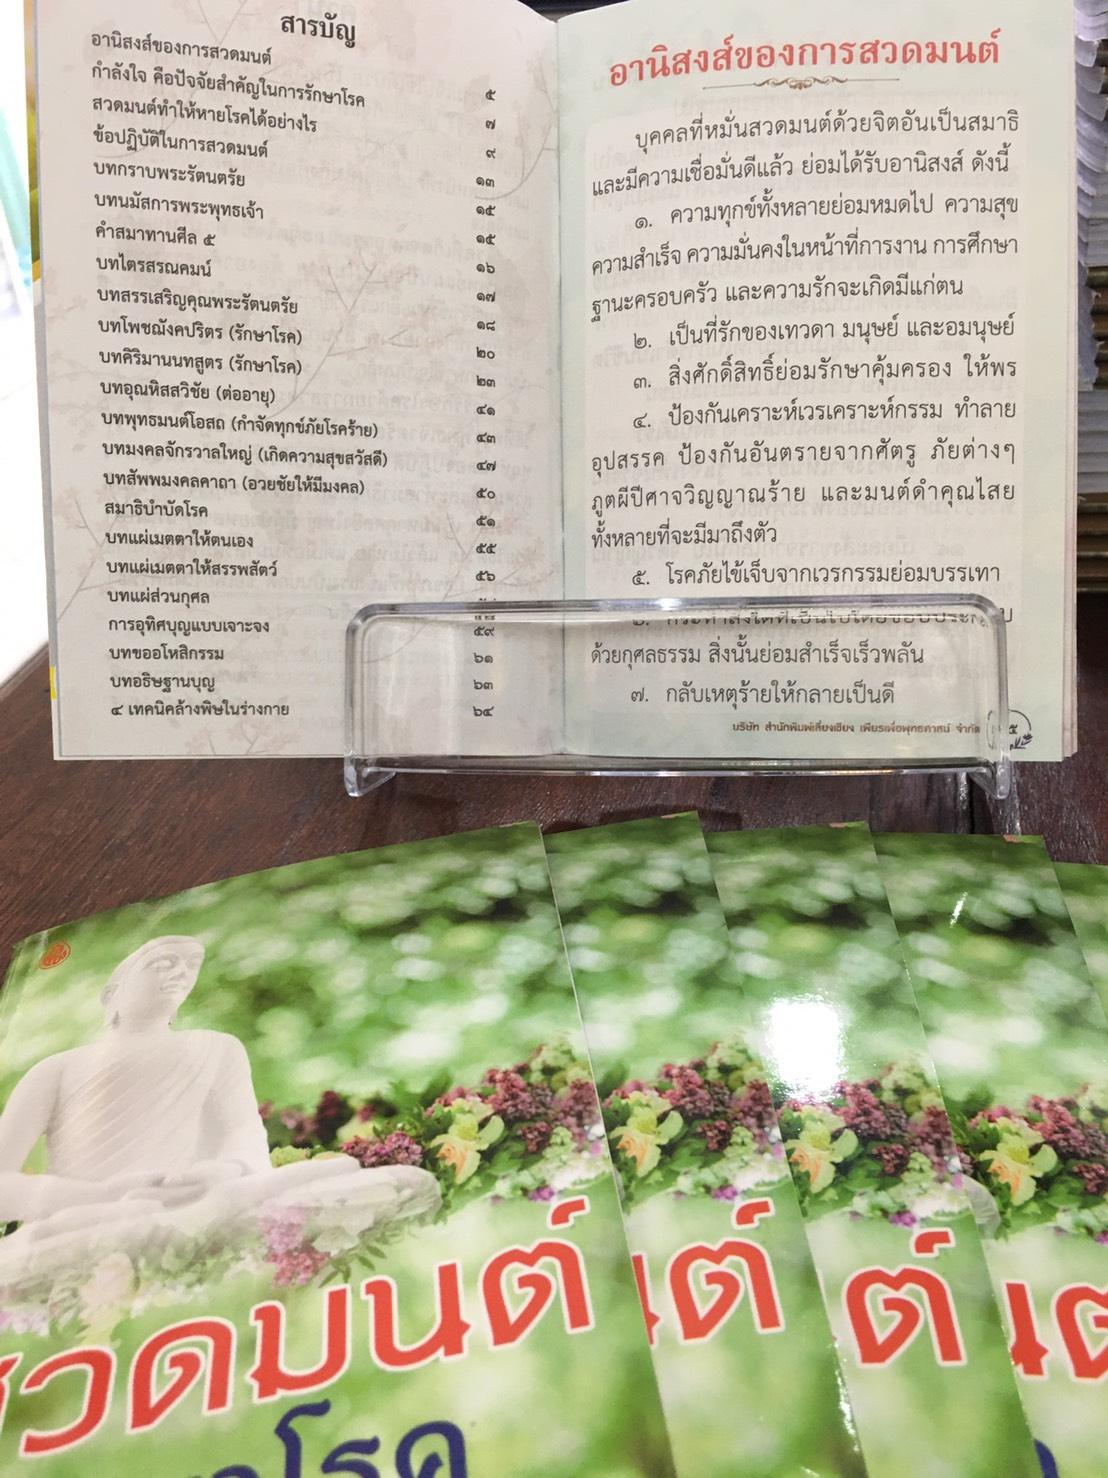 สารบัญ
อานิสงส์ของการสวดมนต์ ๕
กำลังใจ คือปัจจัยสำคัญในการรักษาโรค ๗
สวดมนต์ทำให้หายโรคได้อย่างไร ๙
ข้อปฏิบัติในการสวดมนต์ ๑๓
บทกราบพระรัตนตรัย ๑๕
บทนมัสการพระพุทธเจ้า ๑๕
คำสมาทานศีล ๕ ๑๖
บทไตรสรณคมน์ ๑๗
บทสรรเสริญคุณพระรัตนตรัย ๑๘
บทโพชฌังคปริตร (รักษาโรค) ๒๐
บทคิริมานนทสูตร (รักษาโรค) ๒๓
บทอุณหิสสวิชัย (ต่ออายุ) ๔๑
บทพุทธมนต์โอสถ (กำจัดทุกข์ภัยโรคร้าย) ๔๓
บทมงคลจักรวาลใหญ่ (เกิดความสุขสวัสดี) ๔๗
บทสัพพมงคลคาถา (อวยชัยให้มีมงคล) ๕๐
สมาธิบำบัดโรค ๕๑
บทแผ่เมตตาให้ตนเอง ๕๕
บทแผ่เมตตาให้สรรพสัตว์ ๕๖
บทแผ่ส่วนกุศล
การอุทิศบุญแบบเจาะจง ๕๙
บทขออโหสิกรรม ๖๑
บทอธิษฐานบุญ ๖๓
๔ เทคนิคล้างพิษในร่างกาย ๖๔
อานิสงส์ของการสวดมนต์
บุคคลที่หมั่นสวดมนต์ด้วยจิตอันเป็นสมาธิ
และมีความเชื่อมั่นดีแล้ว ย่อมได้รับอานิสงส์ ดังนี้
๑. ความทุกข์ทั้งหลายย่อมหมดไป ความสุข
ความสำเร็จ ความมั่นคงในหน้าที่การงาน การศึกษา
ฐานะครอบครัว และความรักจะเกิดมีแก่ตน
๒. เป็นที่รักของเทวดา มนุษย์ และอมนุษย์
๓. สิ่งศักดิ์สิทธิ์ย่อมรักษาคุ้มครอง ให้พร
๔. ป้องกันเคราะห์เวรเคราะห์กรรม ทำลาย
อุปสรรค ป้องกันอันตรายจากศัตรู ภัยต่างๆ
ภูตผีปีศาจวิญญาณร้าย และมนต์ดำคุณไสย
ทั้งหลายที่จะมีมาถึงตัว
๕. โรคภัยไข้เจ็บจากเวรกรรมย่อมบรรเทา
๖. กระทำสิ่งใดที่เป็นไปโดยชอบประกอบ
ด้วยกุศลธรรม สิ่งนั้นย่อมสำเร็จเร็วพลัน
๗. กลับเหตุร้ายให้กลายเป็นดี
บริษัท สำนักพิมพ์เลี่ยงเชียง เพียรเพื่อพุทธศาสน์ จำกัด ๕
สวดมนต์
โรค